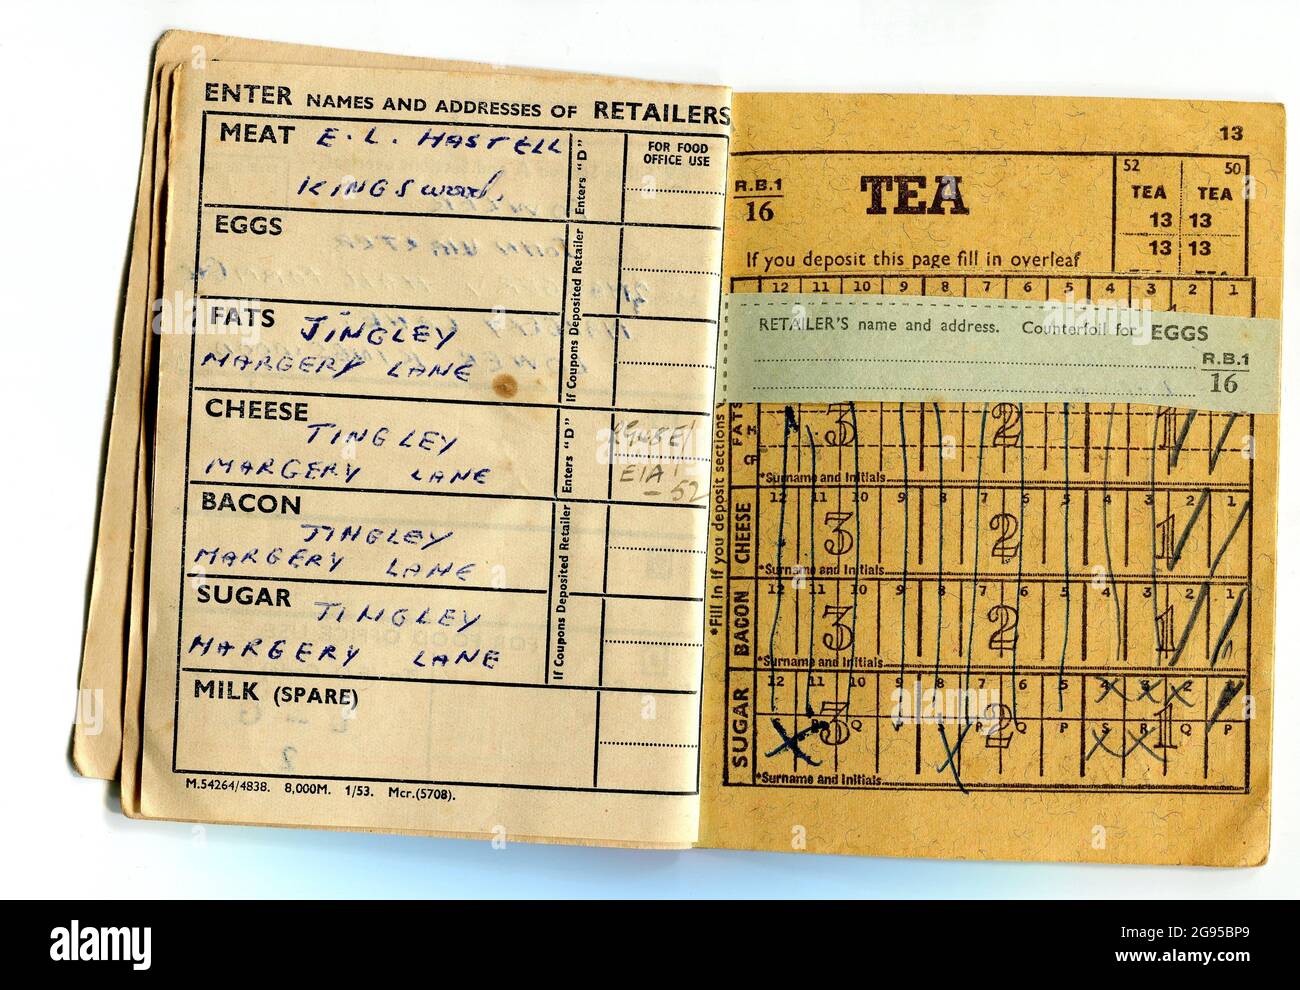 ENTER NAMES AND ADDRESSES OF RETAILERS
MEAT E. L. HASTELL
KINGSwood,
Enters "D"
FOR FOOD
OFFICE USE
EGGS
If Coupons Deposited Retailer
FATS JINGLEY
MARGERY LANE
CHEESE
TINGLEY
MARGERY LANE
Enters "D"
E1A
- 52
BACON
TINGLEY
MARGERY LANE
If Coupons Deposited Retailer
SUGAR TINGLEY
MARGERY LANE
MILK (SPARE)
M.54264/4838. 8,000M. 1/53. Mcr.(5708).
13
R.B.1
16
TEA
52 50
TEA TEA
13 13
13 13
If you deposit this page fill in overleaf
12 11 10 9 8 7 6 5 4 3 2 1
RETAILER'S name and address. Counterfoil for EGGS
R.B.1
16
*Fill in if you deposit sections
FATS
3 2 1
*Surname and Initials
CHEESE
12 11 10 9 8 7 6 5 4 3 2 1
3 2 1
*Surname and Initials
BACON
12 11 10 9 8 7 6 5 4 3 2 1
3 2 1
*Surname and Initials
SUGAR
12 11 10 9 8 7 6 5 4 3 2 1
3 2 1
P Q P S R Q P
*Surname and Initials
alamy
Image ID: 2G95BP9
www.alamy.com